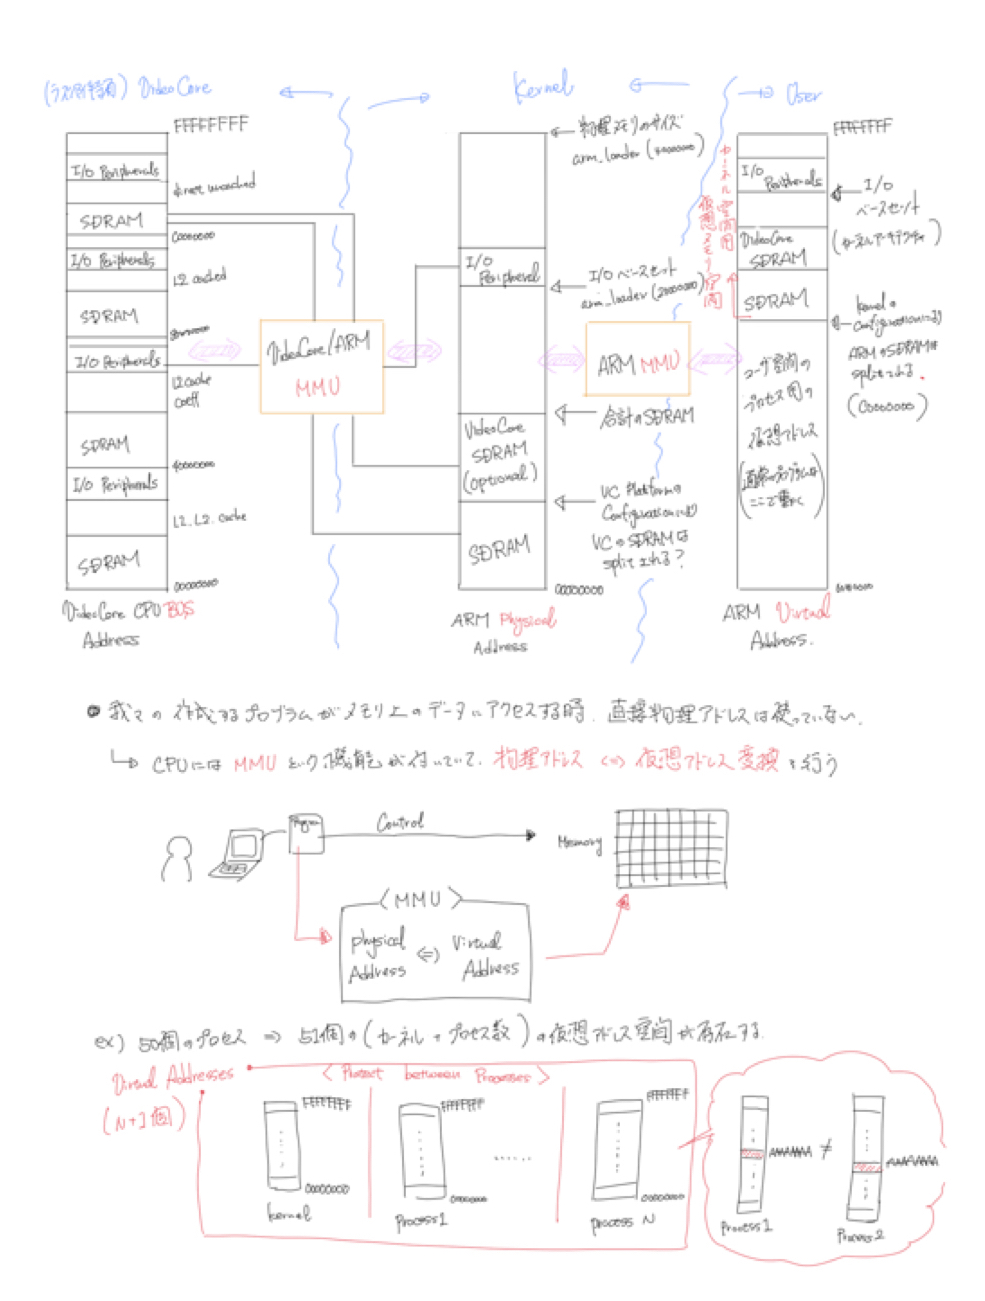 (ラズパイ特有) VideoCore
Kernel
User
FFFFFFFF
I/O Peripherals
SDRAM
C0000000
I/O Peripherals
L2 cached
SDRAM
I/O Peripherals
L2 cache
SDRAM
40000000
I/O Peripherals
L1, L2 cache
SDRAM
00000000
VideoCore CPU BUS
Address
VideoCore/ARM
MMU
物理メモリのサイズ
arm_loader
I/O
Peripheral
I/O ベースセット
arm_loader (20000000)
合計のSDRAM
VideoCore
SDRAM
(optional)
VC Platformの
Configurationにより
VCのSDRAMは
splitされる?
SDRAM
00000000
ARM Physical
Address
ARM MMU
カーネル空間用
仮想メモリー空間
FFFFFFFF
I/O
Peripherals
I/O
ベースセット
VideoCore
SDRAM
SDRAM
kernelの
Configurationにより
ARMのSDRAMは
splitされる.
(C0000000)
ユーザ空間の
プロセス用の
仮想アドレス
(通常のプログラムは
ここで動く)
ARM Virtual
Address.
● 我々の作成するプログラムがメモリ上のデータにアクセスする時. 直接物理アドレスは使っていない.
↳ CPUには MMU という機能が付いていて. 物理アドレス ⇔ 仮想アドレス変換を行う
Control
Memory
<MMU>
physical
Address
⇔
Virtual
Address
ex) 50個のプロセス ⇒ 51個の(カーネル+プロセス数)の仮想アドレス空間が存在する.
Virtual Addresses
(N+1個)
<Protect between Processes>
FFFFFFFF
00000000
kernel
FFFFFFFF
00000000
Process1
......
FFFFFFFF
00000000
process N
AAAAAAAA
≠
AAAAAAAA
Process1
Process2